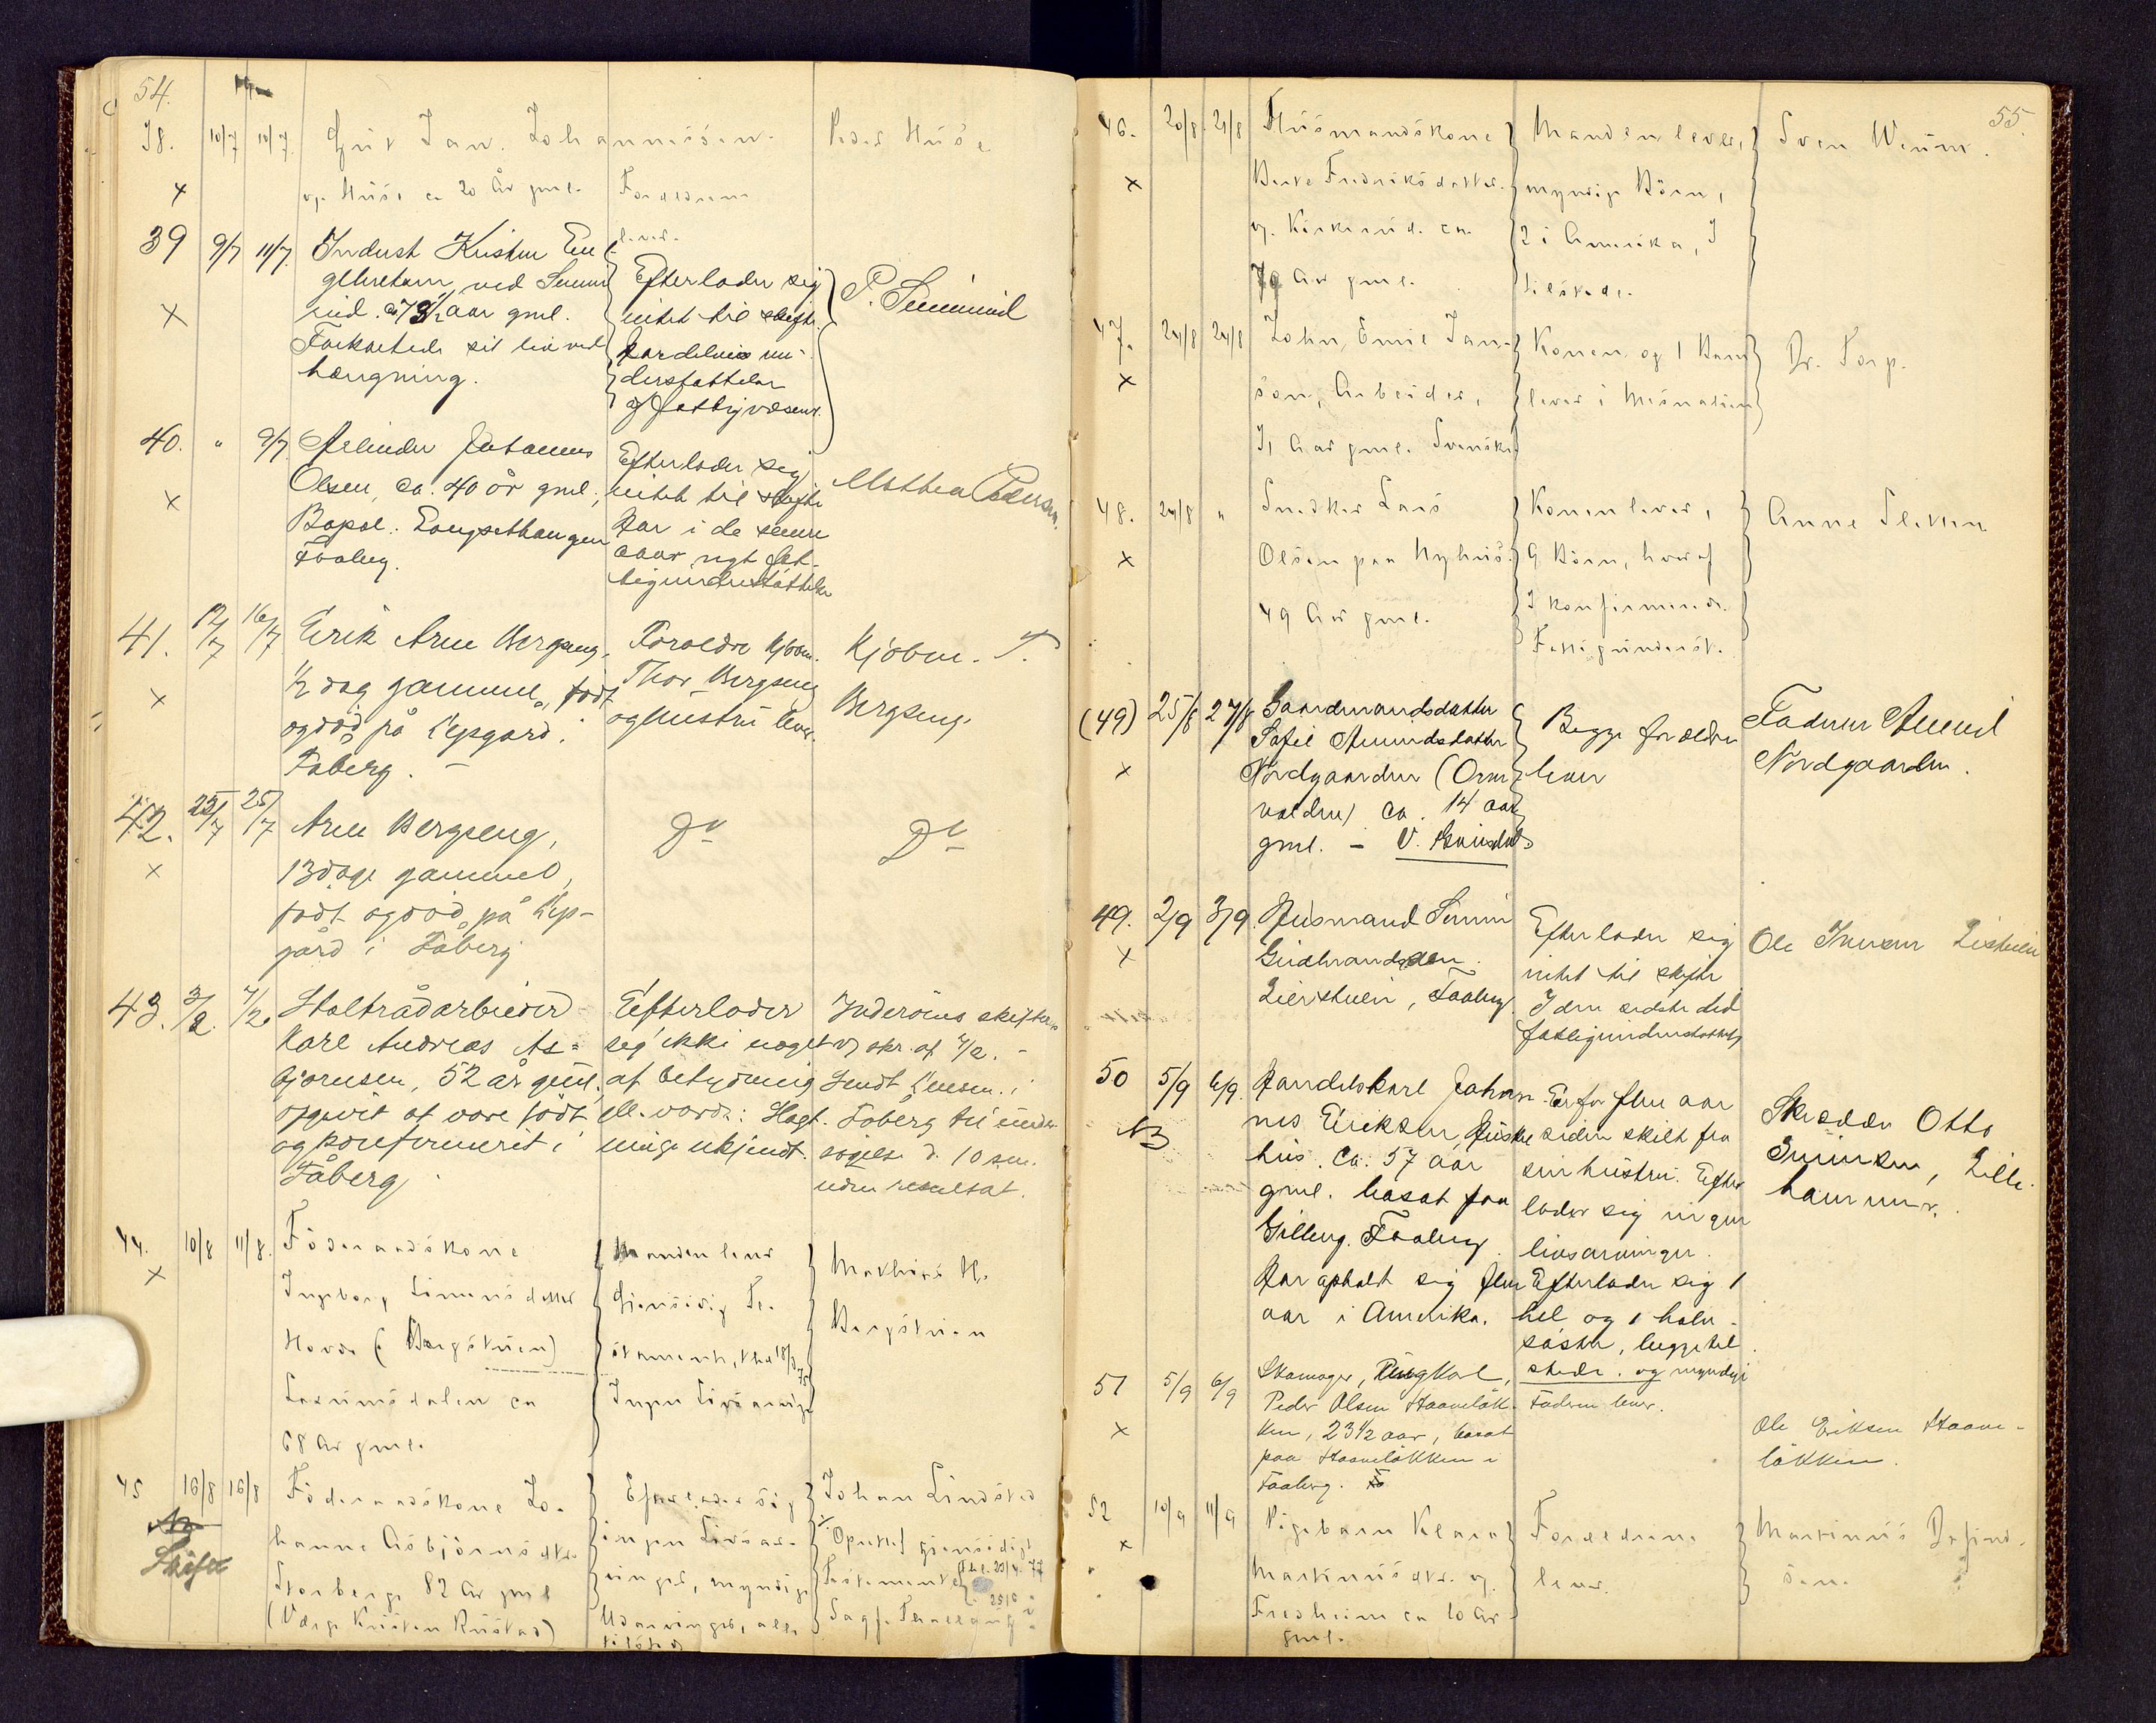 54.
38. 10/7 10/7. Gut Jan. Johannessen. Peder Huse
x og. Huse ca 20 År gml. Forældrene
lever.
39 9/7 11/7. Indust Kristen En
gebretsen, ved Simen
rud. ca 78½ aar gml.
Forkortede sit liv ved
hængning.
Efterlader sig
intet til skifte.
Har delvis un-
derstøttelse
af fattigvæsenet.
P. Simenrud
x
40. " 9/7 Arbeider Johannes
Olsen, ca. 40 år gml.,
Bopæl: Longsethaugen
Faaberg.
Efterlader sig
intet til skifte
Har i de senere
aar nydt fat-
tigunderstøttelse
Mathea Pedersen.
x
41. 12/7 16/7 Erik Arne Bergseng,
½ dag gammel, født
og død på Lysgard i
Faberg. –
Forældre Kjøbm.
Thor Bergseng
og hustru lever.
Kjøbm. T.
Bergseng.
x
42. 25/7 25/7 Arne Bergseng,
13 dage gammel,
født og død på Lys-
gård i Fåberg
Do
Do
x
43. 3/2 7/2. Staltrådarbeider
Karl Andreas As=
bjørnsen, 52 år gml.
opgivet at være født
og konfirmeret i
Fåberg.
Efterlader
sig ikke noget
af betydning
ell. værdi: Slægt-
ninge ukjendt.
Inderøens skifte-
v skr. af 7/2. –
Sendt lensm. i
Fåberg til under-
søgelse d. 10 s.m.
uden resultat.
44. 10/8 11/8. Föderaadskone
Ingeborg Simensdatter
Hovde (: Bergstuen)
Saxumsdalen ca
68 Ar gml.
Manden lever
Gjensidig Te-
stament, thd 18/3 75
Ingen Livsarvinge
Mathias H.
Bergstuen
x
45 16/8 16/8 Föderaadskone Jo-
hanne Asbjørnsdtr.
Storberge 82 Ar gml
(Værge Kristen Rustad)
Efterlader sig
ingen Livsar-
vinger, myndige
Udarvinger, alle
tilstede
Johan Lindstad
Oprettet gjensidigt
Testamente thl. 23/4. 77
Skifte
55.
46. 20/8 21/8 Husmandskone
Berte Fredriksdatter.
og. Kirkerud. ca.
79 Aar gml.
Manden lever,
myndige Börn,
2 i Amerika, 3
tilstede.
Sven Weum.
x
47. 24/8 24/8 John, Emil Jan-
son, Arbeider,
31 Aar gml. Svensk
Konen og 1 Barn
lever i Mesnalien
Dr. Torp.
x
48. 24/8 " Snedker Lars
Olsen paa Nyhus.
49 Aar gml.
Konen lever,
9 Börn, hvoraf
3 konfirmerede.
Fattigunderst.
Anne Sletten
x
(49) 25/8 27/8 Gaardmandsdatter
Sofie Amundsdatter
Nordgaarden (Orm
valden) ca. 14 aar
gml. – V. Gausdal
Begge forældre
lever
Faderen Amund
Nordgaarden.
x
49. 2/9 3/9. Husmand Simen
Gudbrandsen
Lierstuen, Faaberg
Efterlader sig
intet til skifte
I den sidste tid
fattigunderstøttet
Ole Iversen Liestuen
x
50 5/9 6/9. Handelskarl Johan-
nes Eriksen, Huske
hus. Ca. 57 aar
gml. bosat paa
Gilberg. Faaberg.
Har opholdt sig flere
aar i Amerika.
Er for flere aar
siden skilt fra
sin hustru. Efter
lader sig ingen
livsarvinger.
Efterlader sig 1
hel og 1 halv-
søster, begge til
stede. og myndige
Skrædder Otto
Simensen, Lille-
hammer.
NB
51 5/9 6/9 Skomager, Ungkarl,
Peder Olsen Haaveløk-
ken, 23½ aar, bosat
paa Haaveløkken i
Faaberg.
Faderen lever.
Ole Eriksen Haave-
løkken.
x
52 10/9 11/9 Pigebarn Klara
Martinusdtr. og.
Fredheim ca 10 Ar
gml.
Forældrene
lever.
Martinus Dafind-
sen.
x